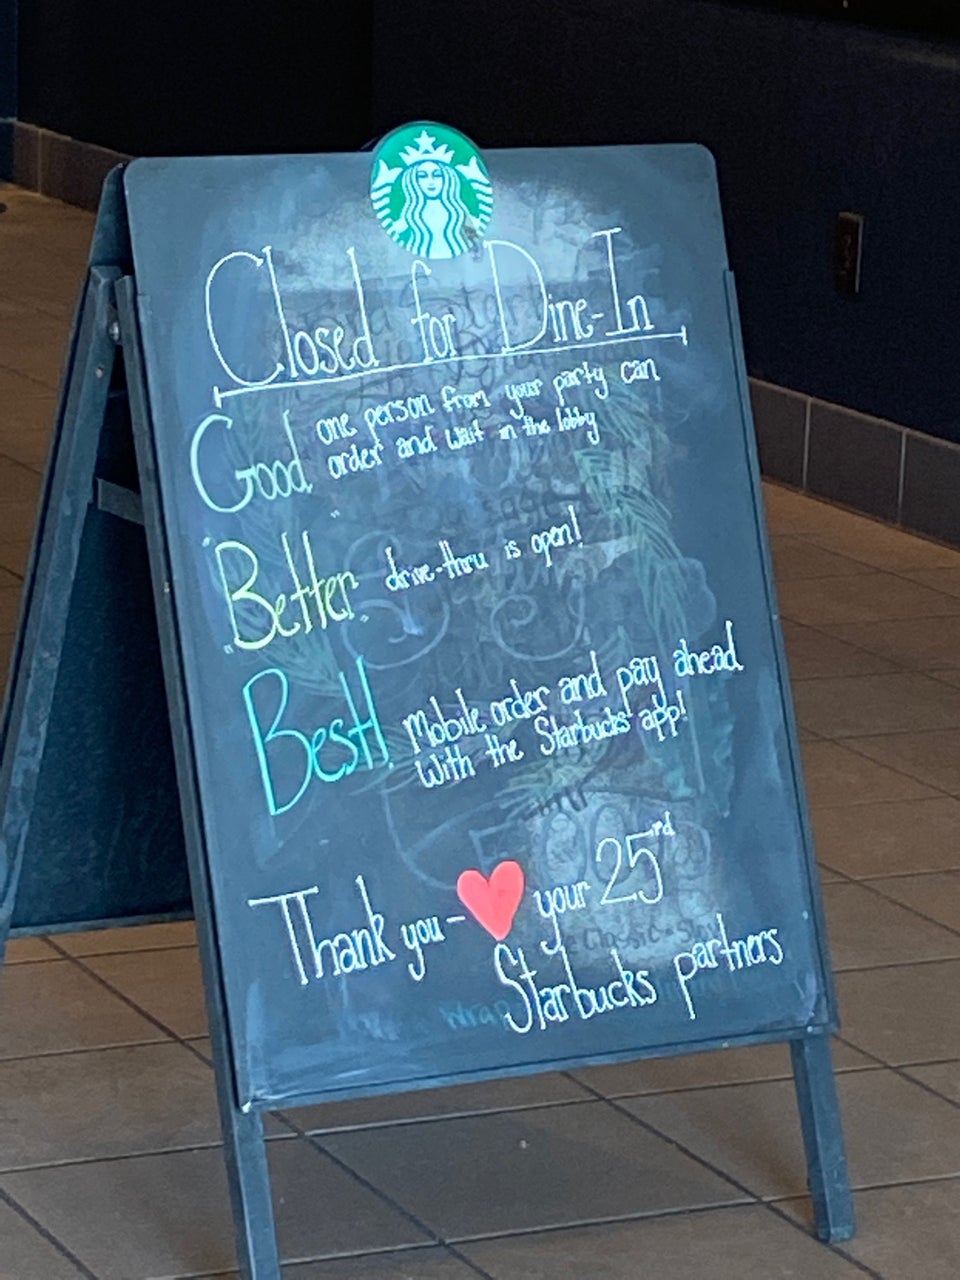 Closed for Dine-In
Good one person from your party can
order and wait in the lobby
"Better" drive-thru is open!
Best! Mobile order and pay ahead
with the Starbucks app!
Thank you - ❤ your 25rd
Starbucks partners